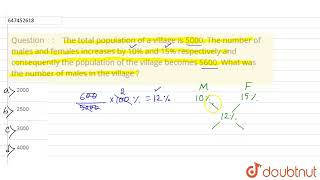 647452618
Question : : The total population of a village is 5000. The number of
males and females increases by 10% and 15% respectively and
consequently the population of the village becomes 5600. What was
the number of males in the village?
a) 2000
b) 3000
c) 2500
d) 4000
600/5000 × 100 % = 12 %
2
M F
10% 15%
12%
doubtnut